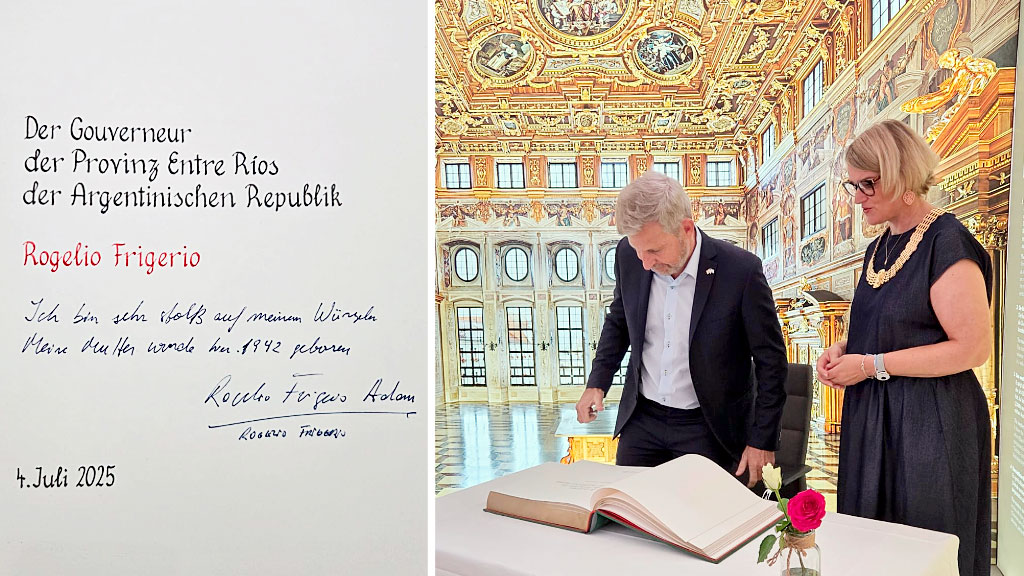 Der Gouverneur
der Provinz Entre Ríos
der Argentinischen Republik
Rogelio Frigerio
Ich bin sehr stolz auf meinen Würzeln
Meine Mutter wurde hier 1942 geboren
Rogelio Frigerio Adam
ROGELIO FRIGERIO
4. Juli 2025